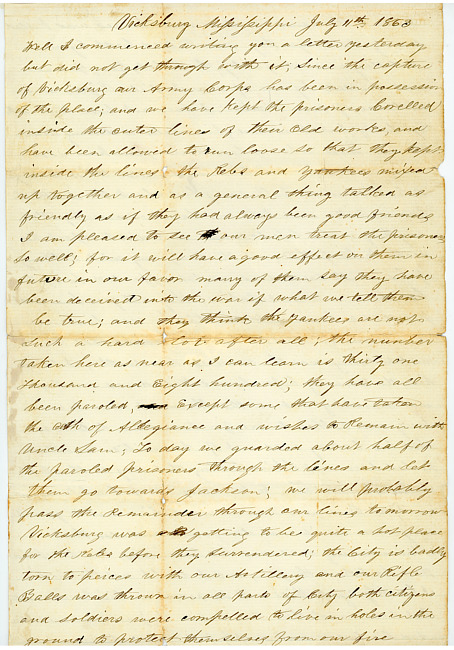 Vicksburg Mississippi July 11th 1863
Well I commenced writing you a letter yesterday
but did not get through with it; Since the capture
of Vicksburg our Army Corps has been in possession
of the place; and we have kept the prisoners Corelled
inside the outer lines of their old works, and
have been allowed to run loose so that they kept
inside the lines, the Rebs and Yankees mixed
up together and as a general thing talked as
friendly as if they had always been good friends
I am pleased to see our men treat the prisoners
so well; for it will have a good effect on them in
future in our favor many of them say they have
been deceived into the war if what we tell them
be true; and they think the Yankees are not
such a hard lot after all; the number
taken here as near as I can learn is thirty one
thousand and Eight hundred; they have all
been paroled, Except some that have taken
the Oth of Allegiance and wishes to Remain with
Uncle Sam; To day we guarded about half of
the paroled prisoners through the lines and let
them go towards Jackson; we will probably
pass the Remainder through our lines tomorrow
Vicksburg was getting to be quite a hot place
for the Rebs before they surrendered; the City is badly
torn to peices with our Artillery and our Rifle
Balls was thrown in all parts of City both citizens
and soldiers were compelled to live in holes in the
ground to protect themselves from our fire